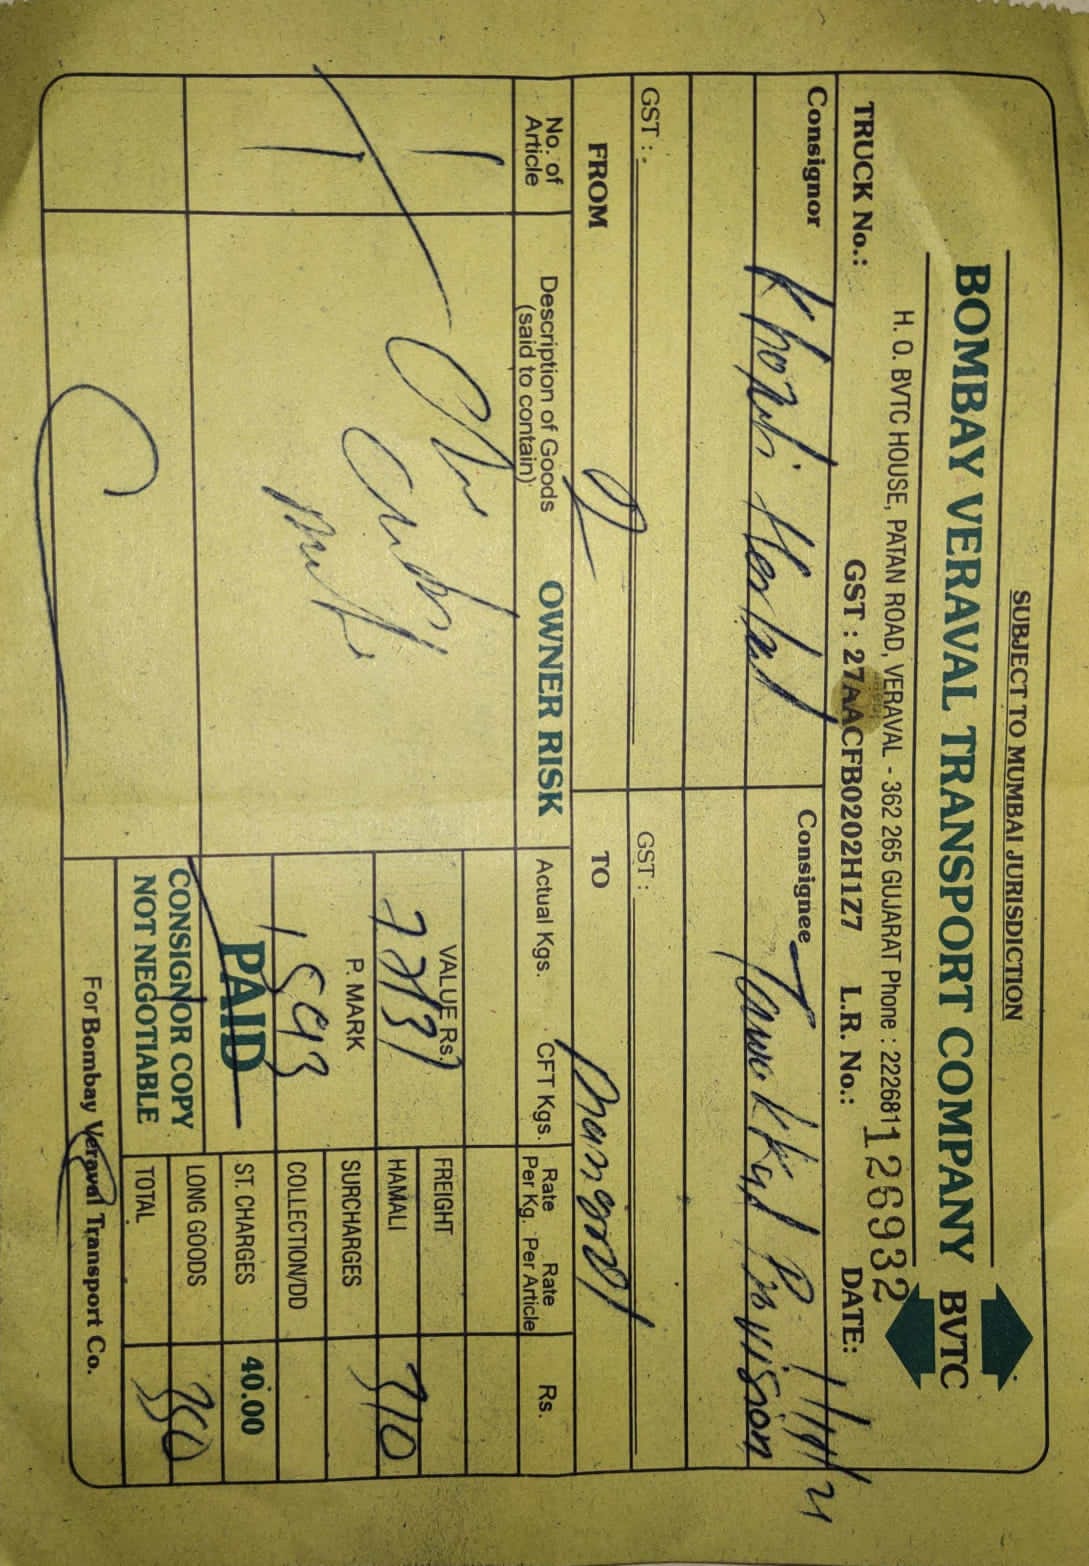 SUBJECT TO MUMBAI JURISDICTION
BOMBAY VERAVAL TRANSPORT COMPANY BVTC
H. O. BVTC HOUSE, PATAN ROAD, VERAVAL - 362 265 GUJARAT Phone : 2226811
TRUCK No.: GST : 27AACFB0202H1Z7 L.R. No.: 126932 DATE:
Consignor Consignee
Provision
GST : GST :
FROM TO
No. of Article Description of Goods (said to contain) OWNER RISK Actual Kgs. CFT Kgs. Rate Per Kg. Rate Per Article Rs.
VALUE Rs. FREIGHT
HAMALI 310
P. MARK SURCHARGES
1593 COLLECTION/DD
PAID ST. CHARGES 40.00
CONSIGNOR COPY LONG GOODS
NOT NEGOTIABLE TOTAL 350
For Bombay Veraval Transport Co.